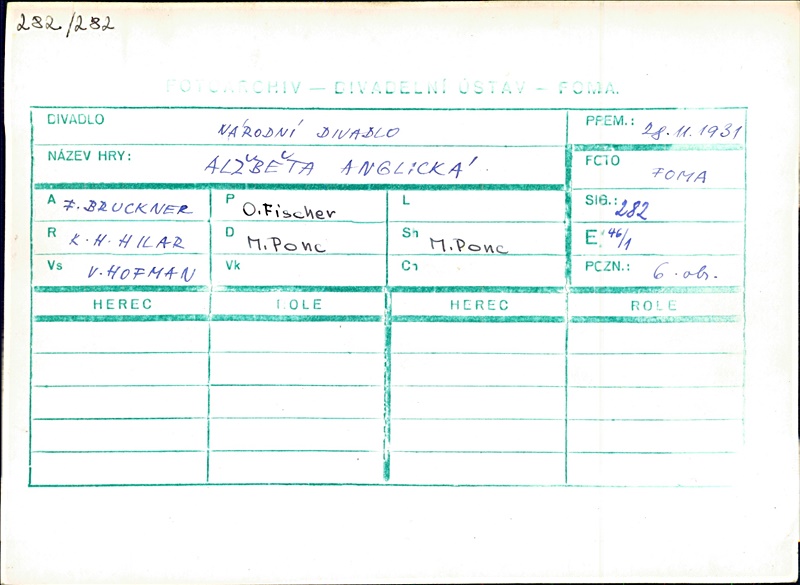 282/282
FOTOARCHIV — DIVADELNÍ ÚSTAV — FOMA.
DIVADLO NÁRODNÍ DIVADLO PREM.: 28.11.1931
NÁZEV HRY: ALŽBĚTA ANGLICKÁ FOTO FOMA
A F. BRUCKNER P O. Fischer L SIG.: 282
R K. H. HILAR D M. Ponc Sh M. Ponc E 46/1
Vs V. HOFMAN Vk Ch POZN.: 6 ob.
HEREC ROLE HEREC ROLE